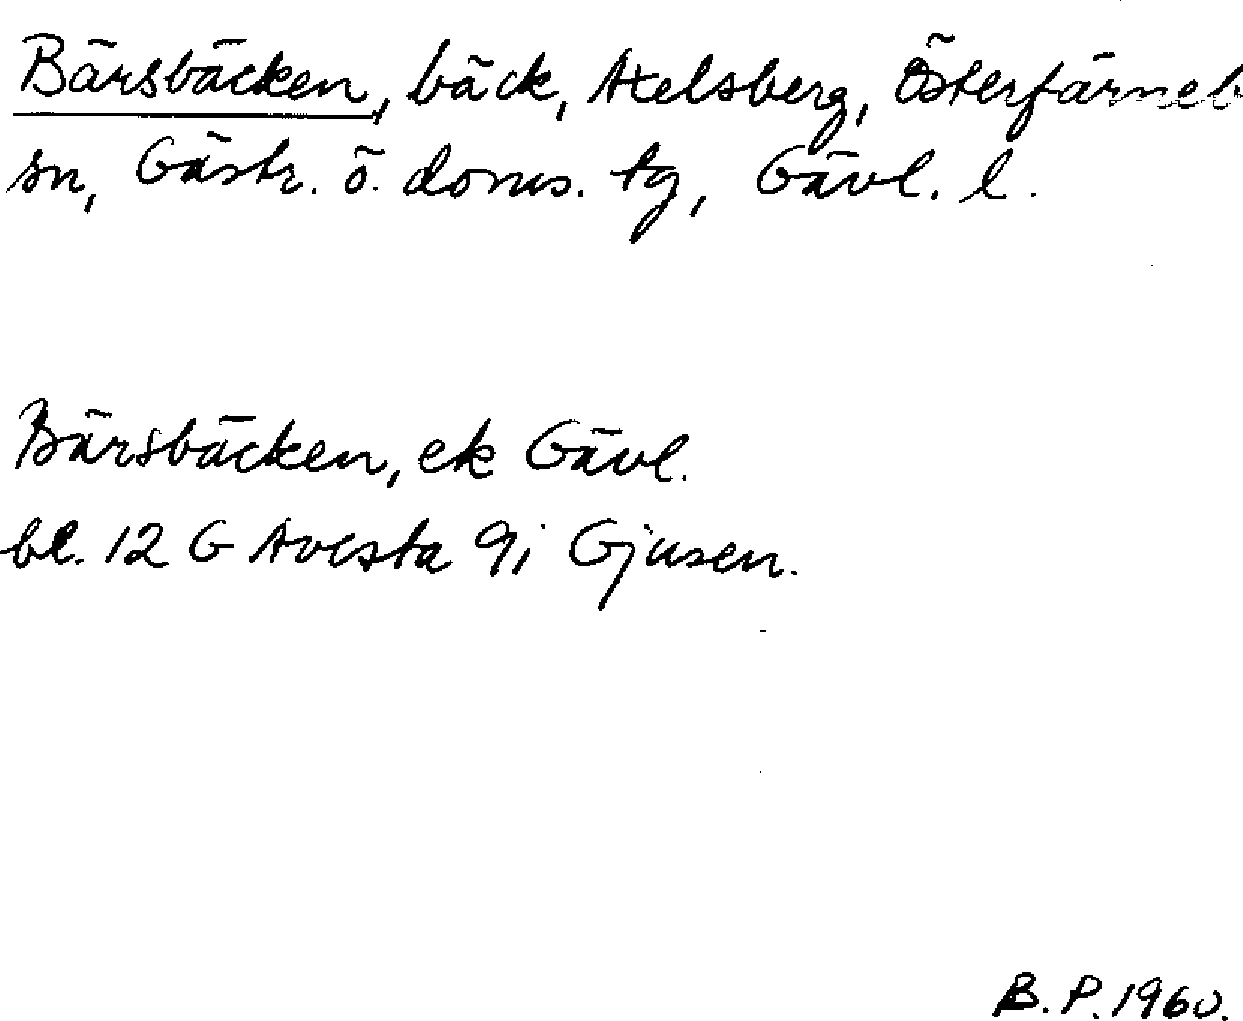 Bärsbäcken, bäck, Axelsberg, Österfärneb
sn, Gästr. ö. doms. tg, Gävl. l.
Bärsbäcken, ek Gävl.
bl. 12 G Avesta 9i Gjusen.
B. P. 1960.